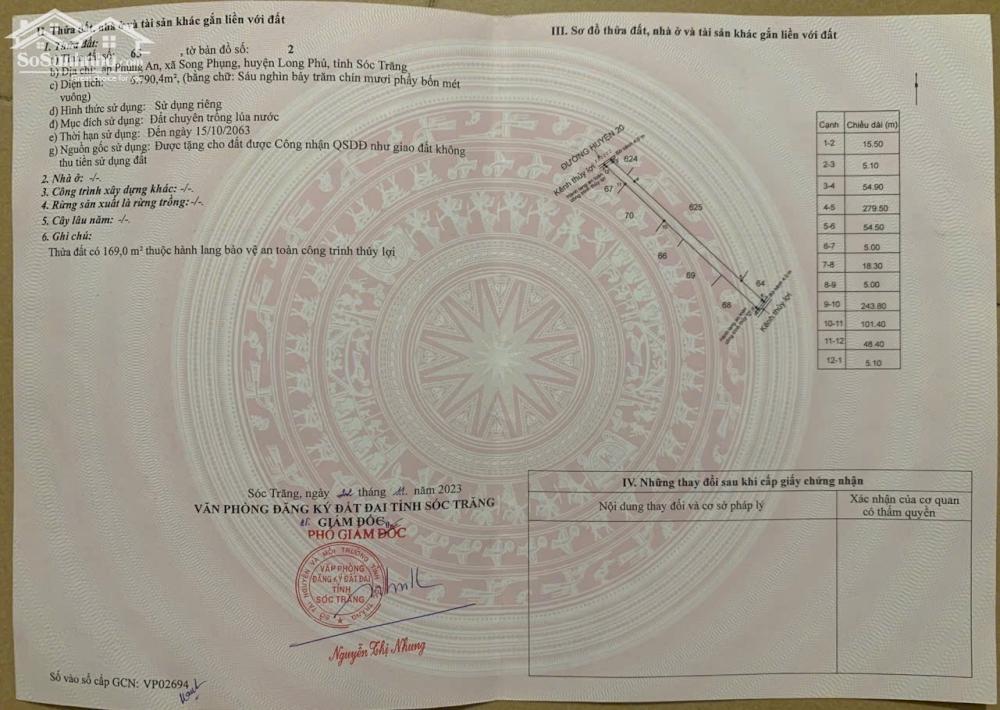 II. Thửa đất, nhà ở và tài sản khác gắn liền với đất
1. Thửa đất:
a) Thửa đất số: 65 , tờ bản đồ số: 2
b) Địa chỉ: ấp Phụng An, xã Song Phụng, huyện Long Phú, tỉnh Sóc Trăng
c) Diện tích: 6.790,4m², (bằng chữ: Sáu nghìn bảy trăm chín mươi phẩy bốn mét
vuông)
d) Hình thức sử dụng: Sử dụng riêng
đ) Mục đích sử dụng: Đất chuyên trồng lúa nước
e) Thời hạn sử dụng: Đến ngày 15/10/2063
g) Nguồn gốc sử dụng: Được tặng cho đất được Công nhận QSDĐ như giao đất không
thu tiền sử dụng đất
2. Nhà ở: -/-.
3. Công trình xây dựng khác: -/-.
4. Rừng sản xuất là rừng trồng: -/-.
5. Cây lâu năm: -/-.
6. Ghi chú:
Thửa đất có 169,0 m² thuộc hành lang bảo vệ an toàn công trình thủy lợi
SoSanhNha.com
Sóc Trăng, ngày tháng 11 năm 2023
VĂN PHÒNG ĐĂNG KÝ ĐẤT ĐAI TỈNH SÓC TRĂNG
GIÁM ĐỐC
PHÓ GIÁM ĐỐC
SỞ TÀI NGUYÊN VÀ MÔI TRƯỜNG TỈNH SÓC TRĂNG
VĂN PHÒNG
ĐĂNG KÝ ĐẤT ĐAI
TỈNH
SÓC TRĂNG
Nguyễn Thị Nhung
Số vào sổ cấp GCN: VP02694
III. Sơ đồ thửa đất, nhà ở và tài sản khác gắn liền với đất
ĐƯỜNG HUYỆN 20
Kênh thủy lợi
624
67
625
70
66
69
64
68
Kênh thủy lợi
Cạnh Chiều dài (m)
1-2 15.50
2-3 5.10
3-4 54.90
4-5 279.50
5-6 54.50
6-7 5.00
7-8 18.30
8-9 5.00
9-10 243.80
10-11 101.40
11-12 48.40
12-1 5.10
IV. Những thay đổi sau khi cấp giấy chứng nhận
Nội dung thay đổi và cơ sở pháp lý
Xác nhận của cơ quan
có thẩm quyền